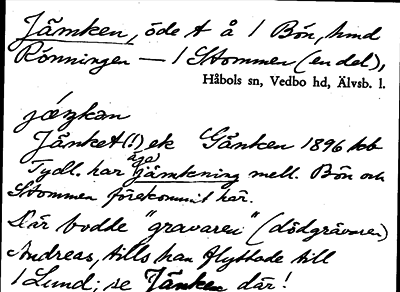 Jämken, öde t å 1 Bön, hmd
Rönningen — 1 Stommen (en del),
Håbols sn, Vedbo hd, Älvsb. l.
Jänket (!) ek Gänken 1896 kb
Tydl. har ägo jämkning mell. Bön och
Stommen förekommit här.
Där bodde "gravaren" (dödgrävaren)
Andreas, tills han flyttade till
1 Lund; se Jänken där!